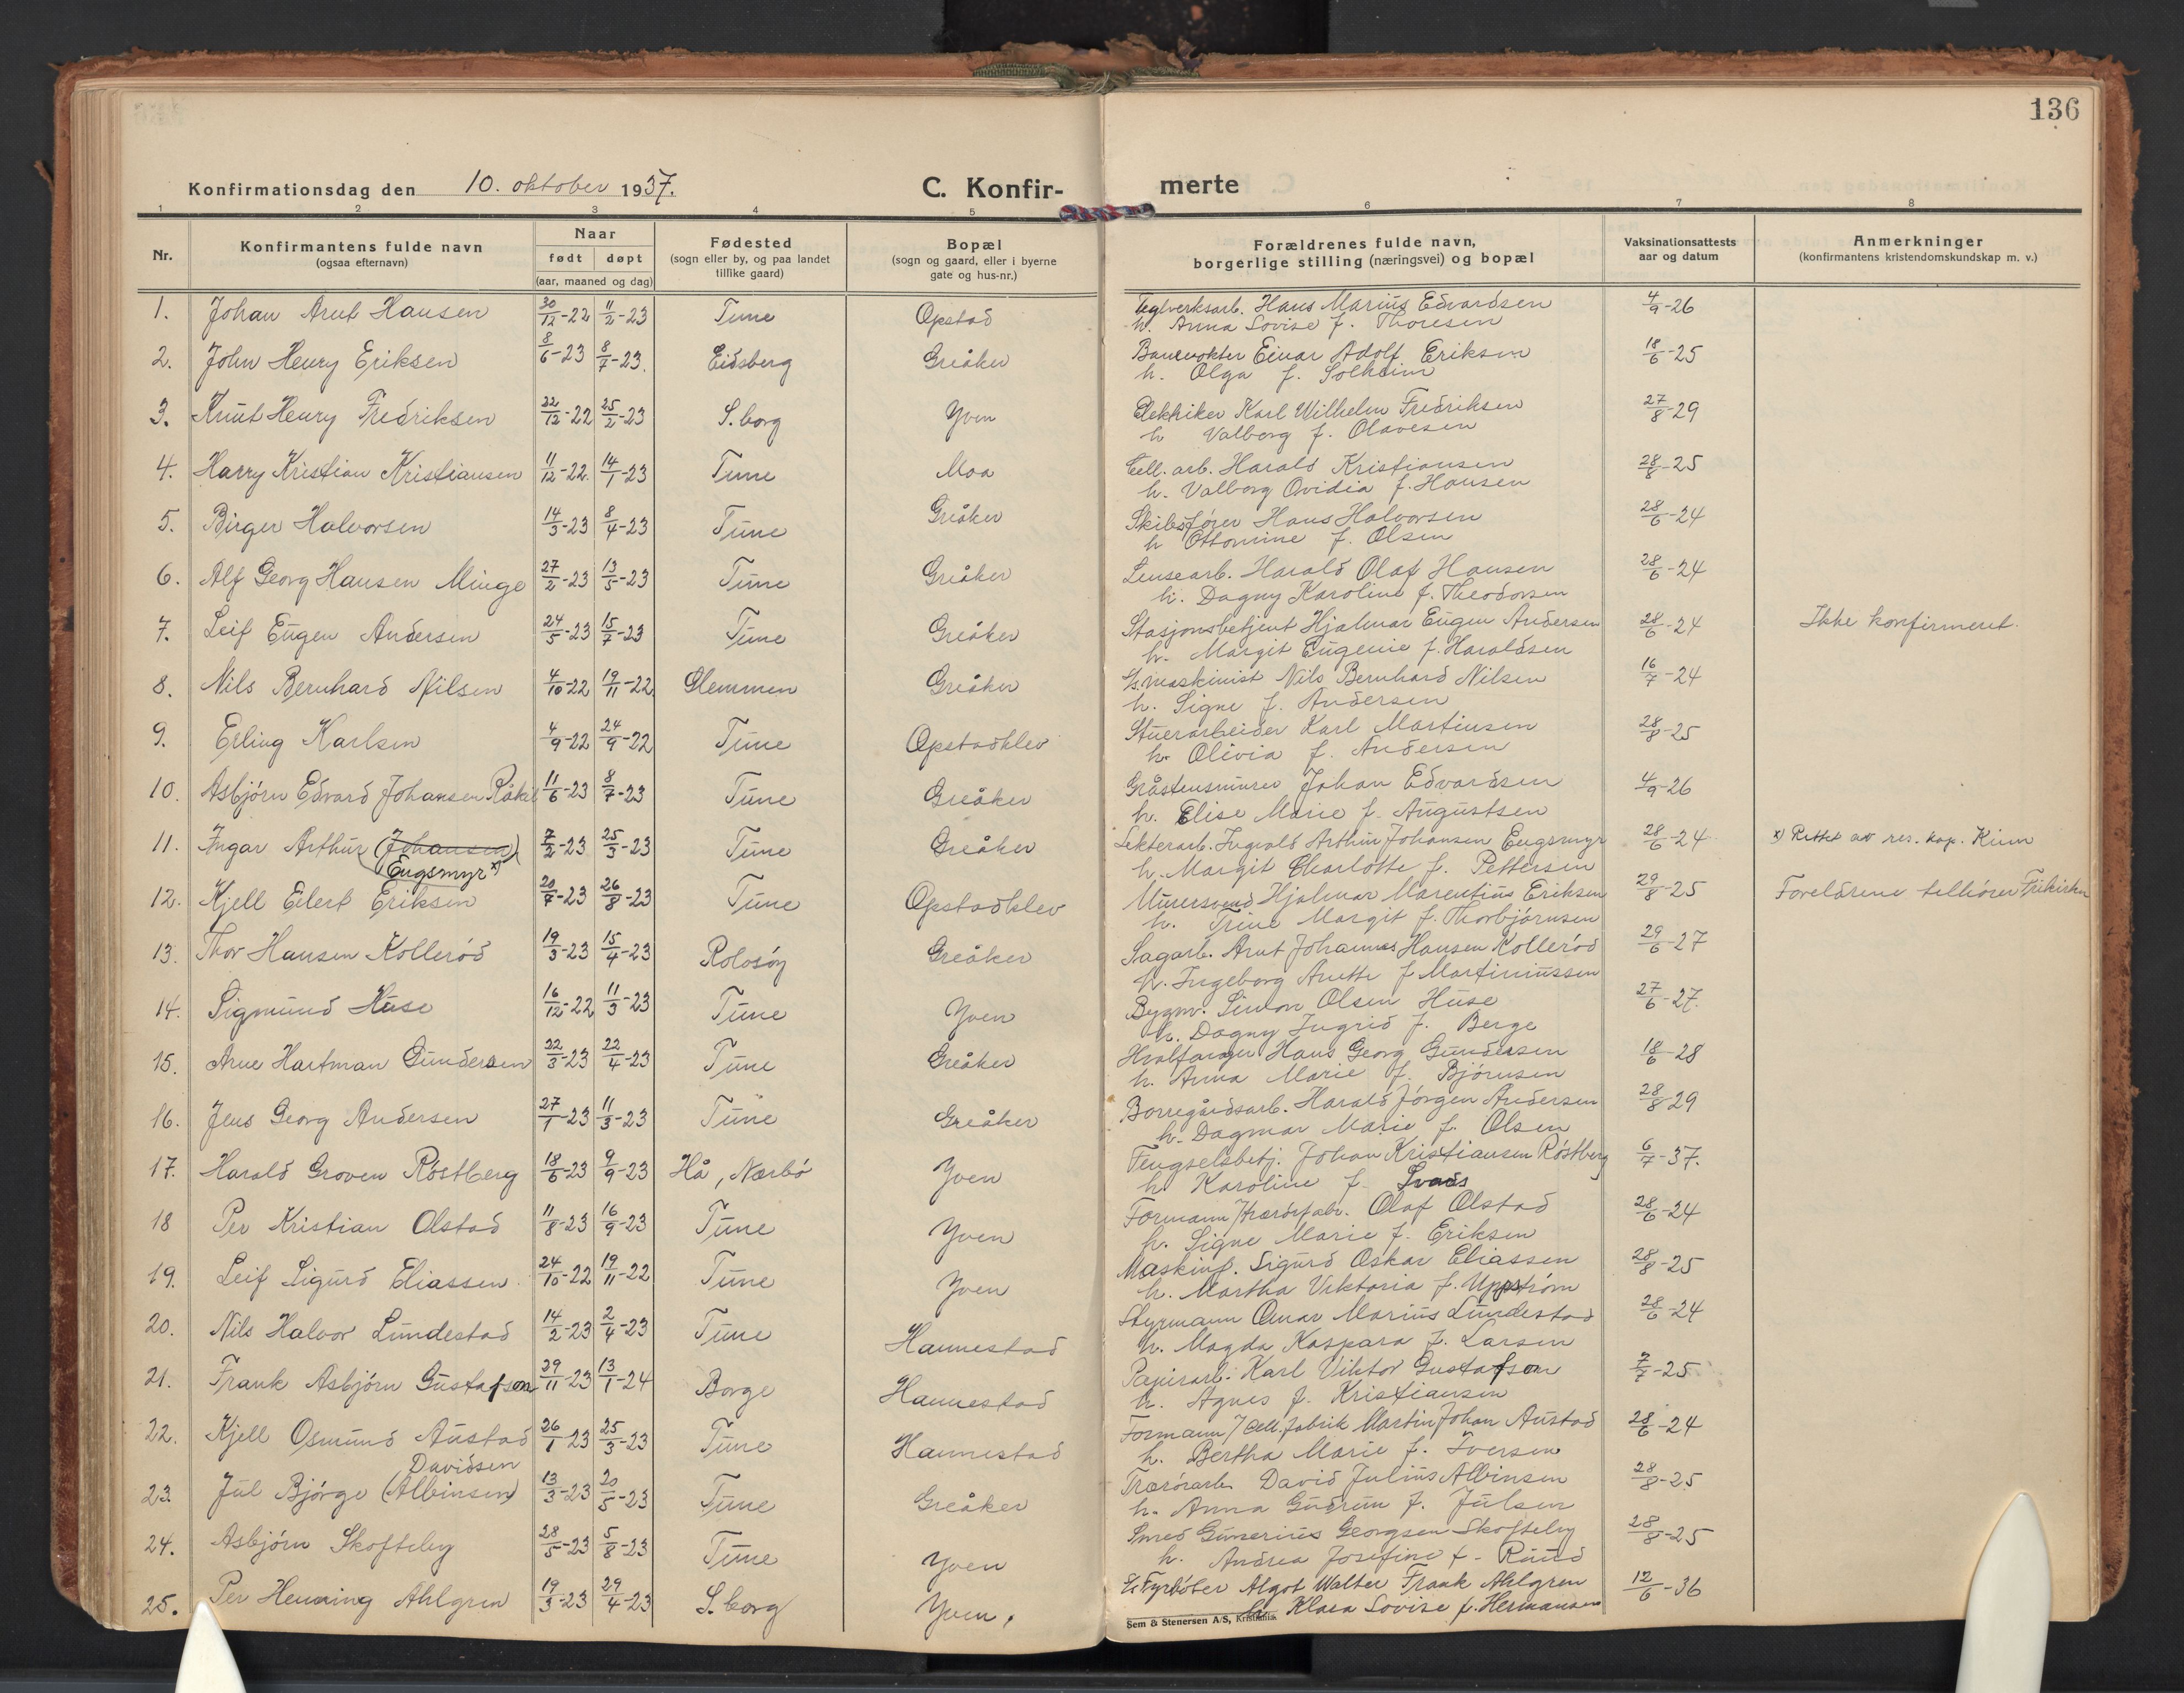 136
Konfirmationsdag den 10. oktober 1937.
C. Konfir-
merte
1 2 3 4 5 6 7 8
Nr.
Konfirmantens fulde navn
(ogsaa efternavn)
Naar
født døpt
(aar, maaned og dag)
Fødested
(sogn eller by, og paa landet
tillike gaard)
Bopæl
(sogn og gaard, eller i byerne
gate og hus-nr.)
Forældrenes fulde navn,
borgerlige stilling (næringsvei) og bopæl
Vaksinationsattests
aar og datum
Anmerkninger
(konfirmantens kristendomskundskap m. v.)
1. Johan Arnt Hansen 30/12-22 11/2-23 Tune Opstad Teglverksarb. Hans Marius Edvardsen 4/9-26
h. Anna Lovise f. Thoresen
2. John Henry Eriksen 8/6-23 8/7-23. Eidsberg Greåker Banevokter Einar Adolf Eriksen 18/6-25
h. Olga f. Solheim
3. Knut Henry Fredriksen 22/12-22 25/2-23 S.borg Yven Elektriker Karl Wilhelm Fredriksen 27/8-29
h Valborg f. Olavesen
4. Harry Kristian Kristiansen 11/12-22. 14/1-23 Tune Moa Cell. arb. Harald Kristiansen 28/8-25
h. Valborg Ovidia f. Hansen
5. Birger Halvorsen 14/3-23 8/4-23 Tune Greåker Skibsfører Hans Halvorsen 28/6-24
h Ottomine f. Olsen
6. Alf Georg Hansen Minge 27/2-23 13/5-23 Tune Greåker Lensearb. Harald Olaf Hansen 28/6-24
h. Dagny Karoline f. Theodorsen
7. Leif Eugen Andersen 24/5-23 15/7-23 Tune Greåker Stasjonsbetjent Hjalmar Eugen Andersen 28/6-24 Ikke konfirmeret.
h. Margit Eugenie f. Haraldsen
8. Nils Bernhard Nilsen 4/10-22 19/11-22 Glemmen Greåker maskinist Nils Bernhard Nilsen 16/7-24
h. Signe f. Andersen
9. Erling Karlsen 4/9-22 24/9-22 Tune Opstadklev Stuerarbeider Karl Martinsen 28/8-25
h. Olivia f. Andersen
10. Asbjørn Edvard Johansen Råkil 11/6-23 8/7-23 Tune Greåker Gråstensmurer Johan Edvardsen 4/9-26
h. Elise Marie f. Augustsen
11. Ingar Arthur (Johansen) 7/2-23 25/3-23 Tune Greåker Lekterarb. Ingvald Arthur Johansen Engsmyr 28/6-24 x) Rettet av res. kap. Kium
Engsmyr x) h. Margit Charlotte f. Pettersen
12. Kjell Eilert Eriksen 20/7-23 26/8-23 Tune Opstadklev Murersvend Hjalmar Marentius Eriksen 29/8-25 Foreldrene tilhører Frikirken
h. Trine Margit f. Thorbjørnsen
13. Thor Hansen Kollerød 19/3-23 15/4-23 Rolvsøy Greåker Sagarb. Arnt Johannes Hansen Kollerød 29/6-27
h. Ingeborg Anette f Martiniussen
14. Sigmund Huse 16/12-22 11/3-23 Tune Yven Bygm. Simon Olsen Huse 27/6-27.
h. Dagny Ingrid f. Berge
15. Arne Hartman Gundersen 22/3-23 22/4-23 Tune Greåker Hvalfanger Hans Georg Gundersen 18/6-28
h. Anna Marie f. Bjørnsen
16. Jens Georg Andersen 27/1-23 11/3-23 Tune Greåker Borregårdsarb. Harald Jørgen Andersen 28/8-29
h. Dagmar Marie f. Olsen
17. Harald Groven Røstberg 18/6-23 9/9-23 Hå, Nærbø Yven Fengselsbetj. Johan Kristiansen Røstberg 6/7-37.
h. Karoline f.
18 Per Kristian Olstad 11/8-23 16/9-23 Tune Yven Formann Olaf Olstad 28/6-24
h. Signe Marie f. Eriksen
19. Leif Sigurd Eliassen 24/10-22 19/11-22 Tune Yven Maskinf. Sigurd Oskar Eliassen 28/8-25
h. Martha Viktoria f. Uppström
20. Nils Halvor Lundestad 14/2-23 2/4-23 Tune Hannestad Styrmann Marius Lundestad 28/6-24
h. Magda Kaspara f. Larsen
21. Frank Asbjørn Gustafson 29/11-23 13/1-24 Borge Hannestad Papirarb. Karl Viktor Gustafson 7/7-25
h. Agnes f. Kristiansen
22. Kjell Osmund Austad 26/1-23 25/3-23 Tune Hannestad Formann / Cell. fabrik Martin Johan Austad 28/6-24
h. Bertha Marie f. Iversen
Davidsen
23 Jul Bjørge (Albinsen) 13/3-23 20/5-23 Tune Greåker David Julius Albinsen 28/8-25
h. Anna Gudrun f. Julsen
24. Asbjørn Skofteby 28/5-23 5/8-23 Tune Yven Smed Gunerius Georgsen Skofteby 28/8-25
h. Andrea Josefine f. Ruud
25. Per Henning Ahlgren 19/3-23 29/4-23 S.borg Yven. Fyrbøter Algot Walter Frank Ahlgren 12/6-36
h. Klara Lovise f. Hermansen
Sem & Stenersen A/S, Kristiania.